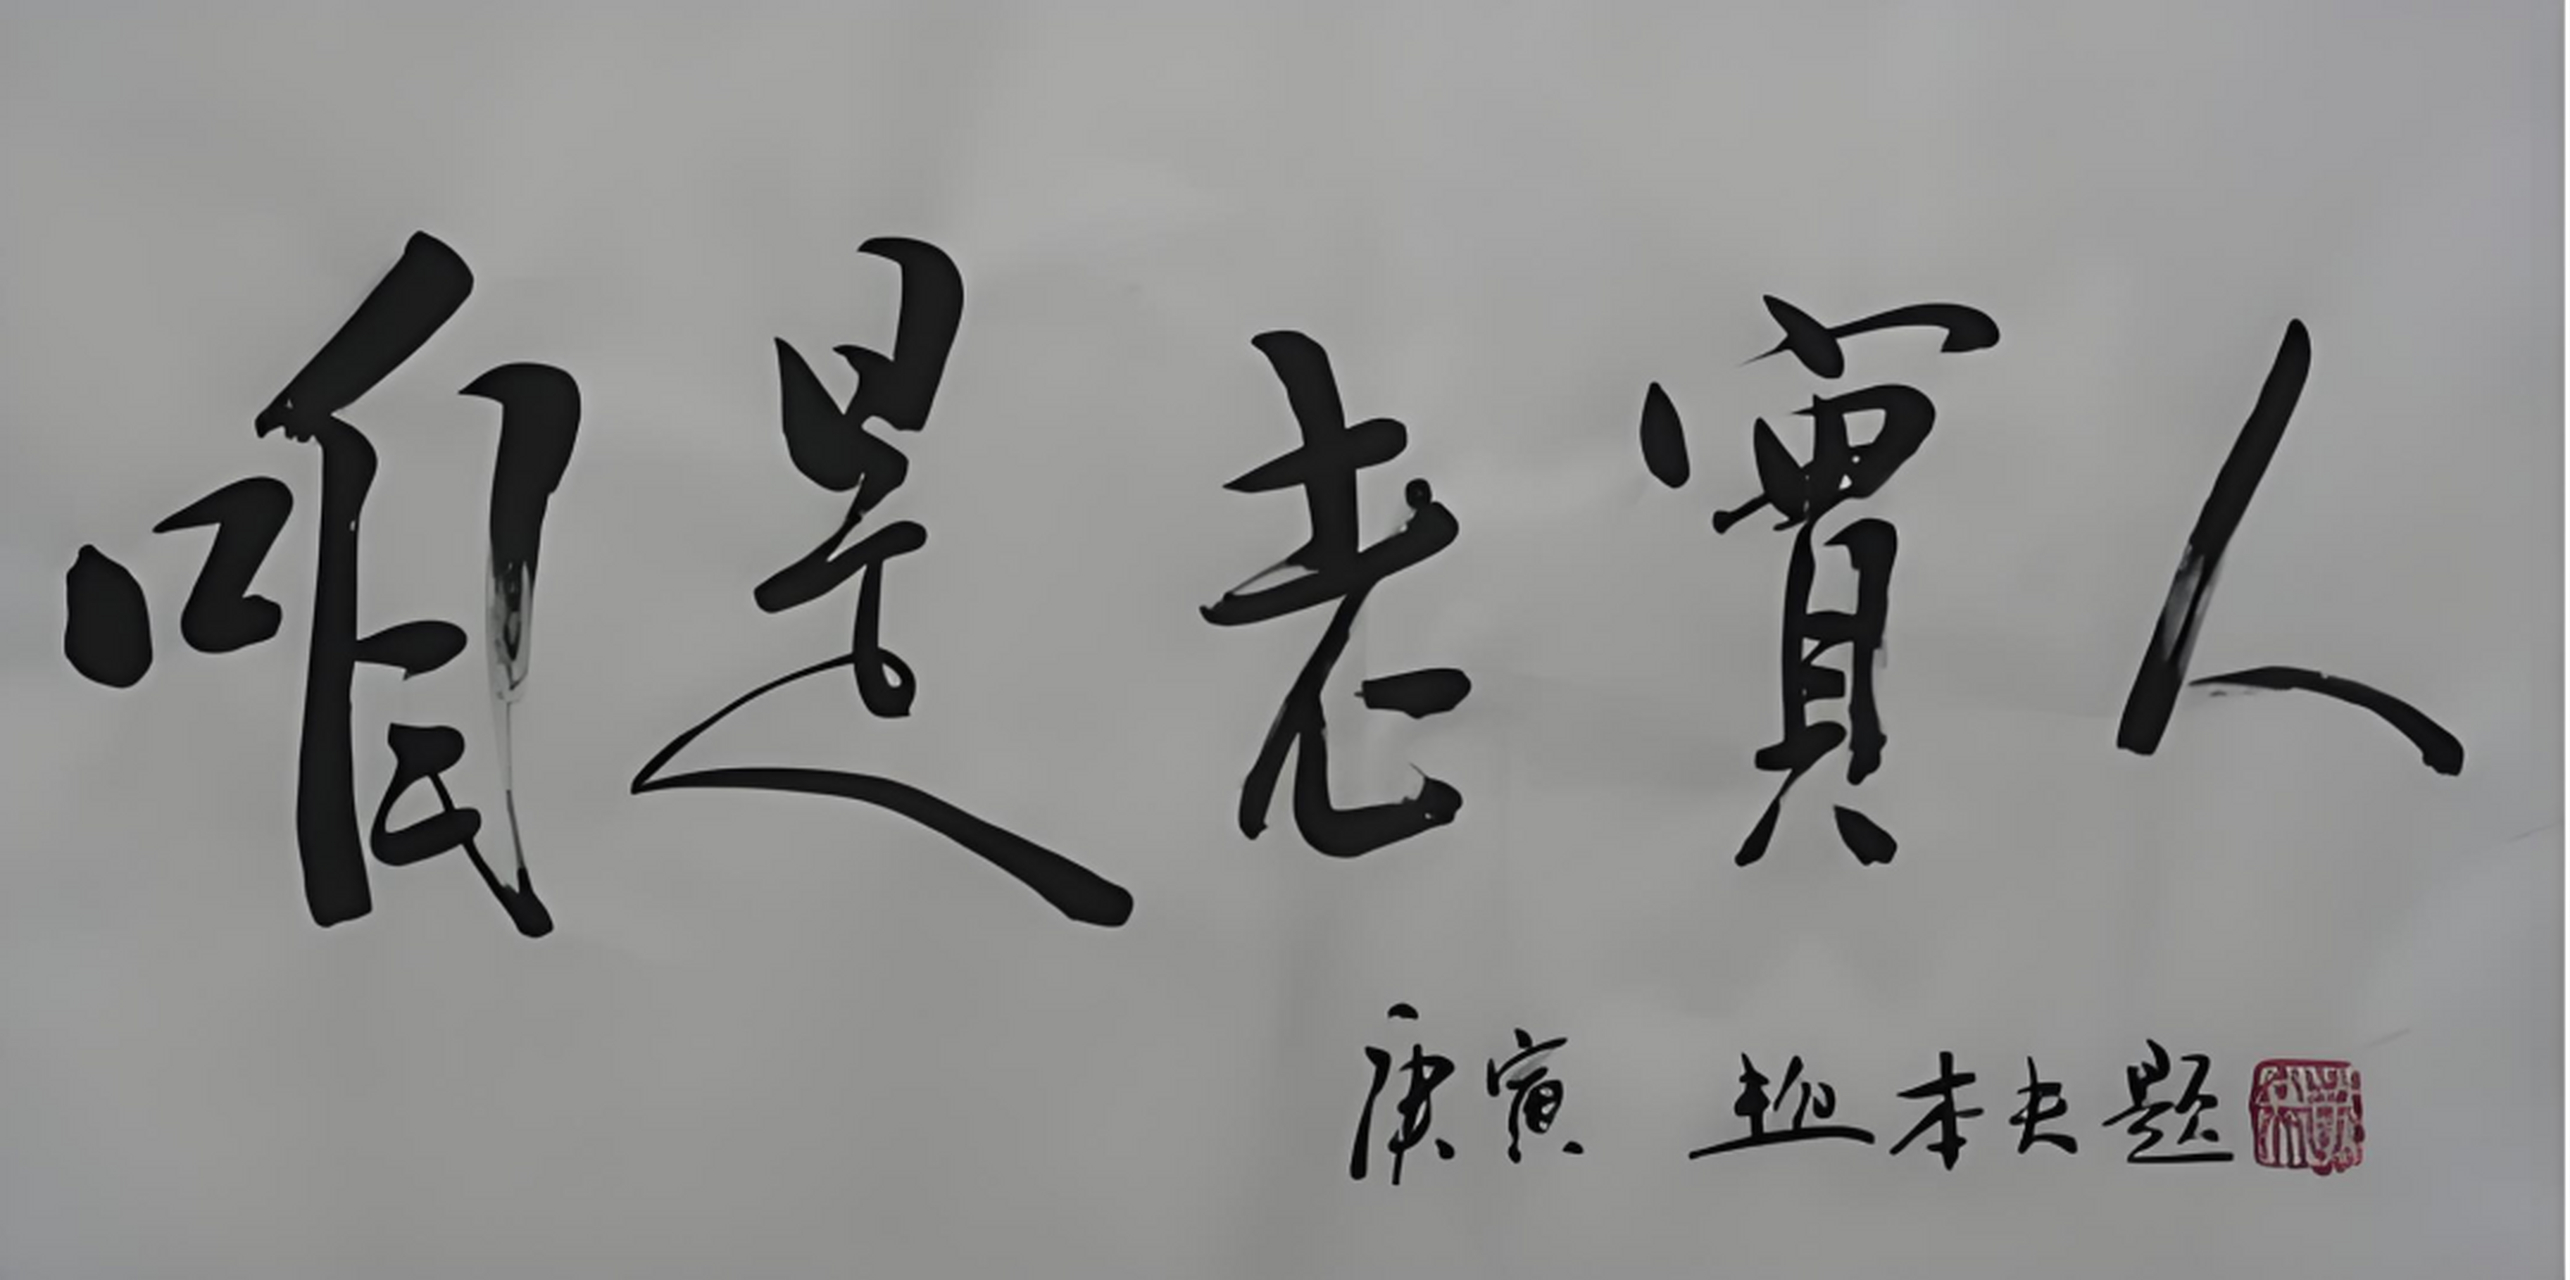 咱是老實人
庚寅 趙本夫题